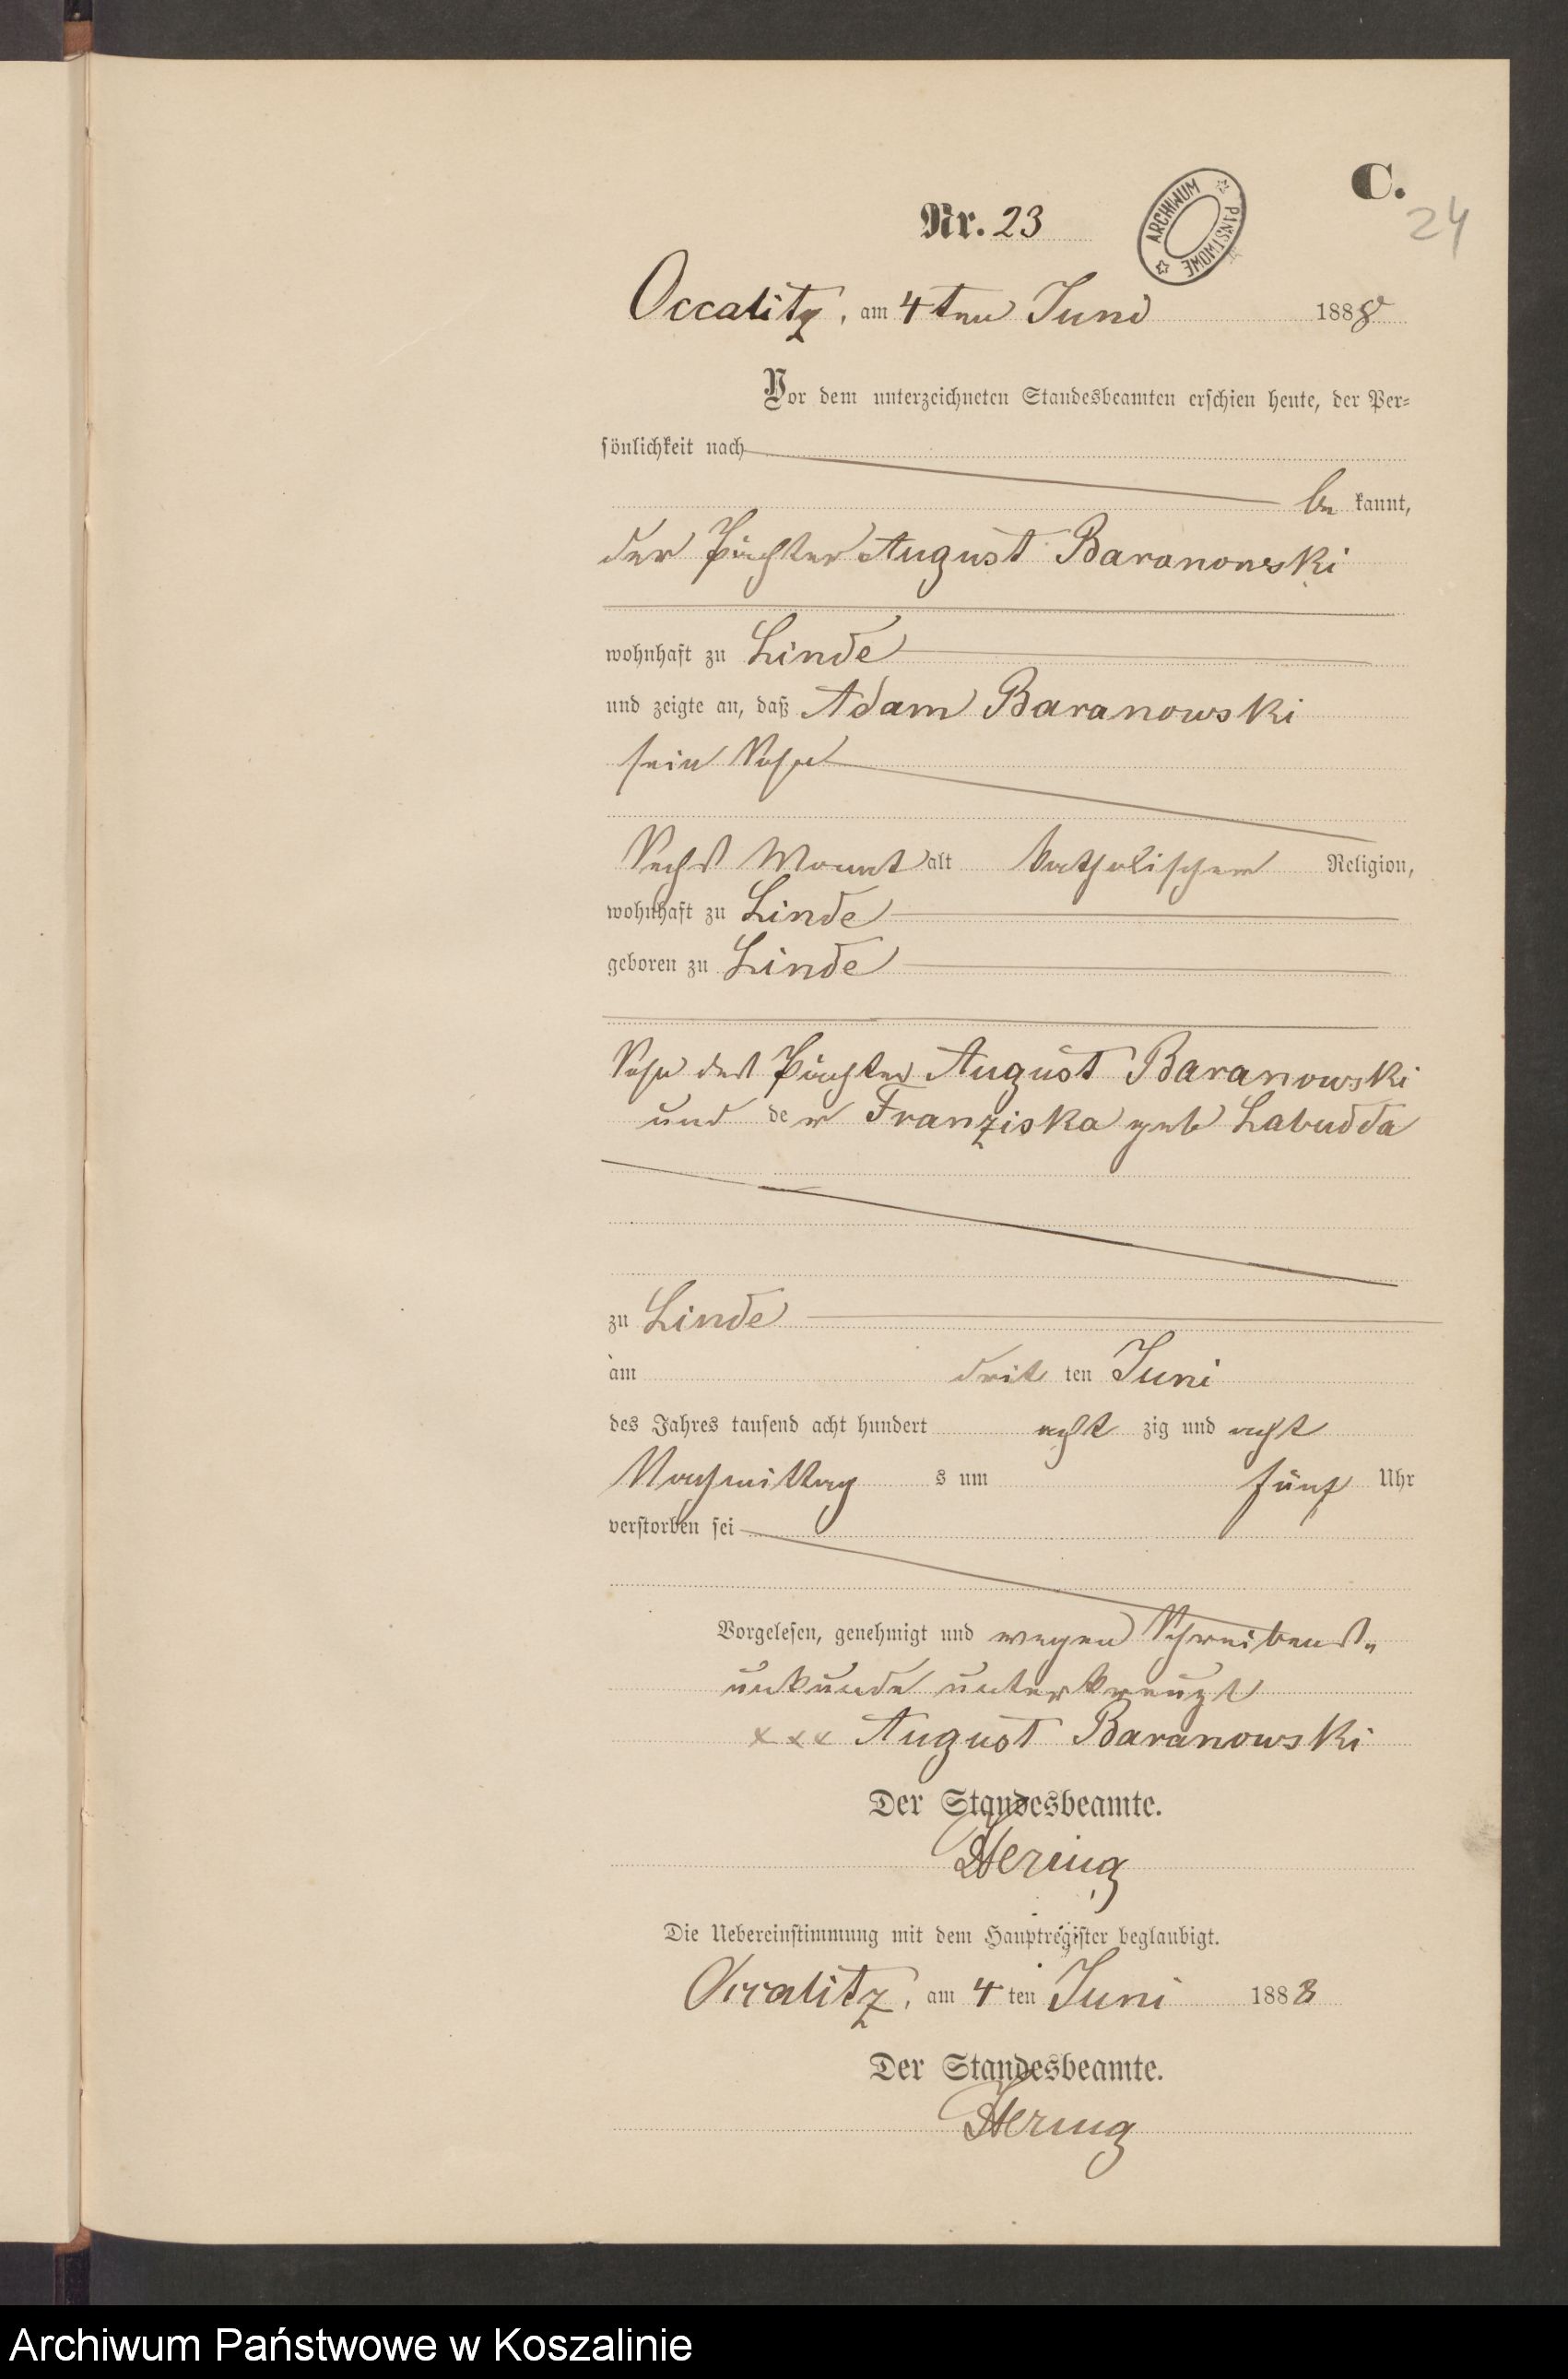 C.
24
Nr. 23
ARCHIWUM PAŃSTWOWE
Occalitz, am 4ten Juni 1888
Vor dem unterzeichneten Standesbeamten erschien heute, der Per-
sönlichkeit nach
be kannt,
der Pächter August Baranowski
wohnhaft zu Linde
und zeigte an, daß Adam Baranowski
sein Sohn
Sechs Monat alt katholischer Religion,
wohnhaft zu Linde
geboren zu Linde
Sohn des Pächter August Baranowski
und der Franziska geb Labudda
zu Linde
am drit ten Juni
des Jahres tausend acht hundert acht zig und acht
Nachmittag s um fünf Uhr
verstorben sei
Vorgelesen, genehmigt und wegen Schreibens-
unkunde unterkreuzt
xxx August Baranowski
Der Standesbeamte.
Hering
Die Uebereinstimmung mit dem Hauptregister beglaubigt.
Occalitz, am 4 ten Juni 1888
Der Standesbeamte.
Hering
Archiwum Państwowe w Koszalinie